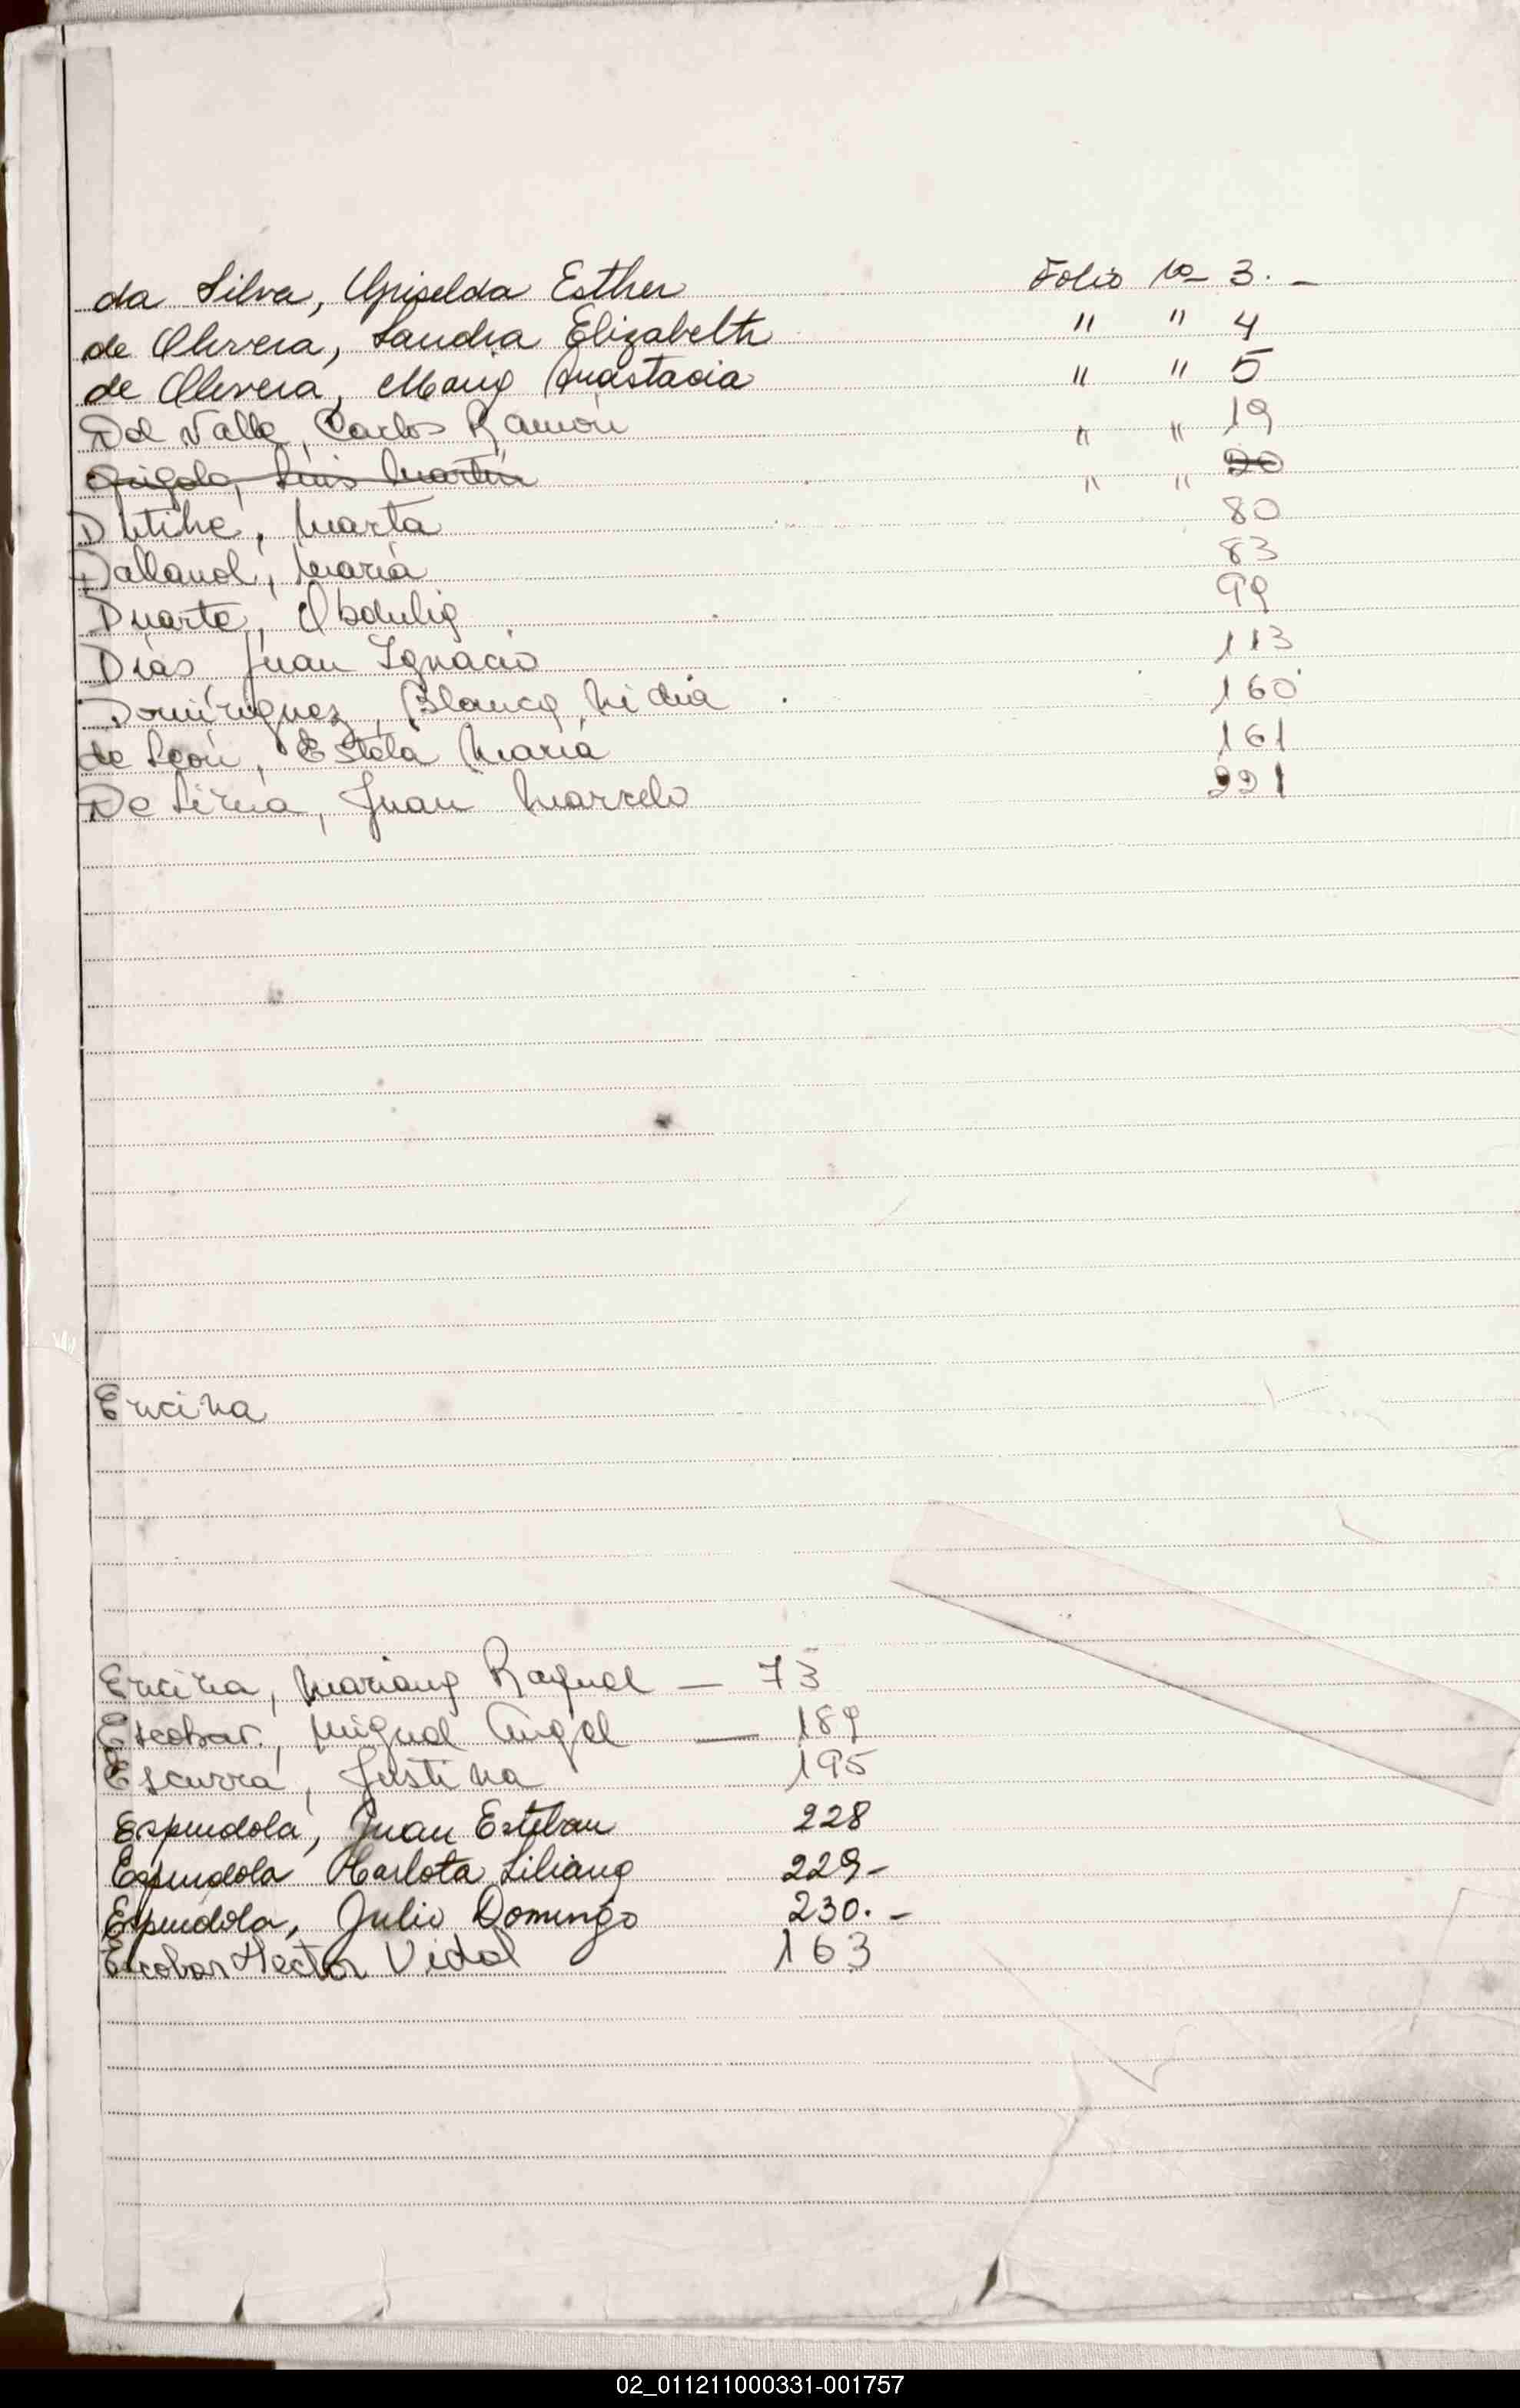 da Silva, Griselda Esther Folio No 3. -
de Olivera, Sandra Elizabeth " " 4
de Olivera, María Anastacia " " 5
Del Valle, Carlos Ramón " " 19
Luis Martín " " 20
Marta 80
Dallanol, María 83
Duarte, Obdulia 99
Días, Juan Ignacio 113
Domíriguez, Blanca Nidia 160
de León, Estela María 161
De Lima, Juan Marcelo 221
Encina
Encina, Mariana Raquel — 73
Escobar, Miguel Angel — 189
Escurra, Justina 195
Espindola, Juan Esteban 228
Espindola Carlota Liliana 229-
Espindola, Julio Domingo 230. -
Escobar Hector Vidal 163
02_011211000331-001757